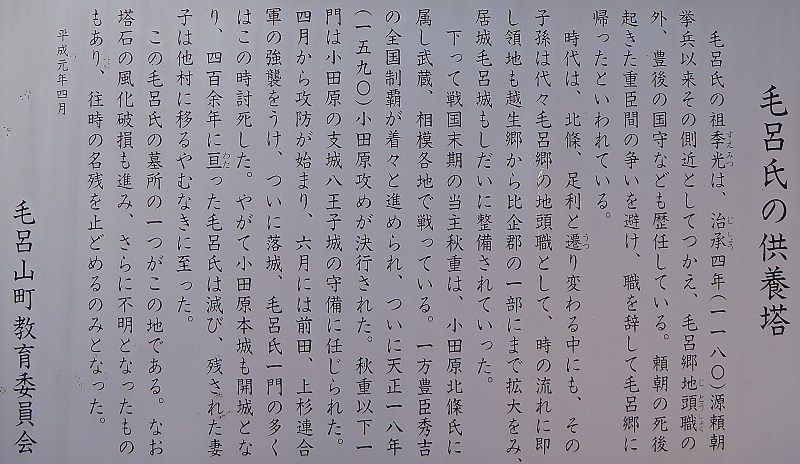 毛呂氏の供養塔
毛呂氏の祖季光は、治承四年（一一八〇）源頼朝
挙兵以来その側近としてつかえ、毛呂郷地頭職の
外、豊後の国守なども歴任している。頼朝の死後
起きた重臣間の争いを避け、職を辞して毛呂郷に
帰ったといわれている。
時代は、北條、足利と遷り変わる中にも、その
子孫は代々毛呂郷の地頭職として、時の流れに即
し領地も越生郷から比企郡の一部にまで拡大をみ、
居城毛呂城もしだいに整備されていった。
下って戦国末期の当主秋重は、小田原北條氏に
属し武蔵、相模各地で戦っている。一方豊臣秀吉
の全国制覇が着々と進められ、ついに天正一八年
（一五九〇）小田原攻めが決行された。秋重以下一
門は小田原の支城八王子城の守備に任じられた。
四月から攻防が始まり、六月には前田、上杉連合
軍の強襲をうけ、ついに落城、毛呂氏一門の多く
はこの時討死した。やがて小田原本城も開城とな
り、四百余年に亘った毛呂氏は滅び、残された妻
子は他村に移るやむなきに至った。
この毛呂氏の墓所の一つがこの地である。なお
塔石の風化破損も進み、さらに不明となったもの
もあり、往時の名残を止どめるのみとなった。
平成元年四月
毛呂山町教育委員会